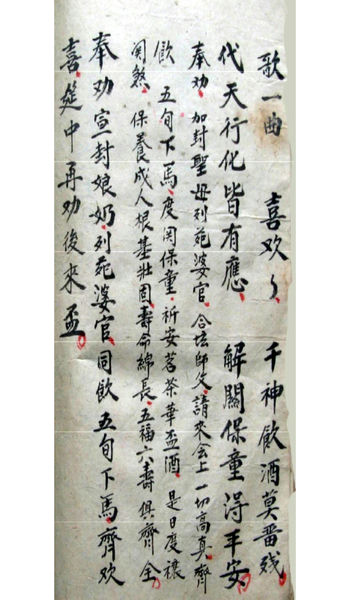 歌一曲 喜欢〻 千神飲酒莫番残
代天行化皆有應 解關保童得平安
奉劝 加封聖母列苑婆官 合坛師父 請来会上一切高真齊
飲 五旬下馬 度関保童 祈安茗茶華盃酒 是日度禳
関煞 保養成人根基壮固 壽命綿長 五福六壽俱齊全
奉劝宣封娘奶 列苑婆官 同飲五旬下馬 齊欢
喜 筵中再劝後來盃